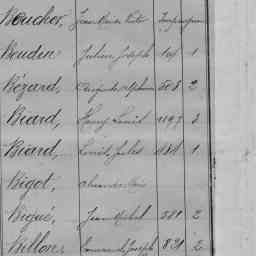 Boucher, Jean Marie
Boudin, Julien Joseph 1
Bézard, Auguste Alphonse 508 2
Biard, Henry Louis 1197 3
Biard, Louis Jules 1
Bigot, Alexandre
Bigué, Jean Michel 581 2
Billon, Emmanuel Joseph 831 2